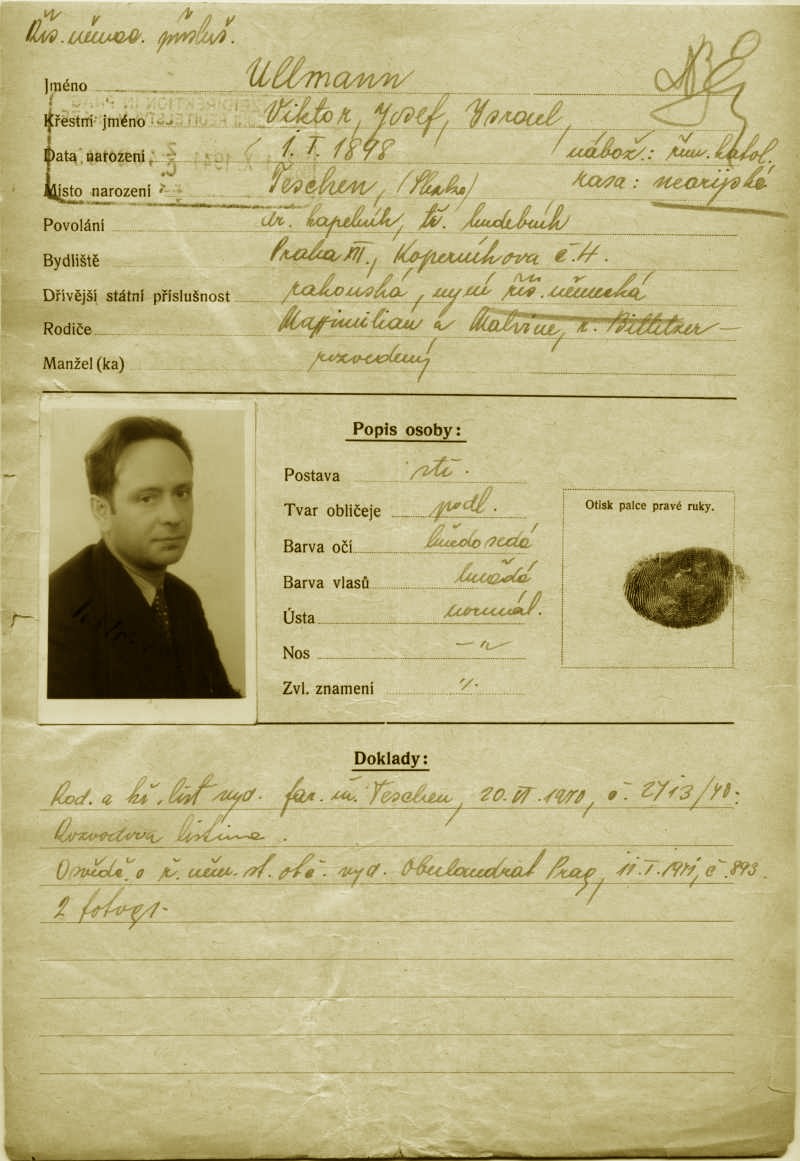 Řís. němec. přísluš.
Jméno Ullmann
Křestní jméno Viktor, Josef, Israel,
Data narození 1. I. 1898 nábož.: řím. katol.
Místo narození Teschen, rasa: nearijské
Povolání kapelník, hudebník
Bydliště Praha XII., Koperníkova č. 4.
Dřívější státní příslušnost rakouská, nyní říš. německá
Rodiče Maximilian a Malvine, r. Billitzer —
Manžel (ka) rozvedený
Popis osoby:
Postava stř.
Tvar obličeje podl.
Barva očí hnědošedá
Barva vlasů hnědá
Ústa normál.
Nos — " —
Zvl. znamení
Otisk palce pravé ruky.
Doklady:
Rod. a kř. list vyd. far. úř. Teschen, 20. VI. 1940, č. 2713/40.
Rozvodová listina.
Osvědč. o ř. něm. st. obč. vyd. Oberlandrat Prag, 11. I. 1941, č. 893.
2 fotogr.